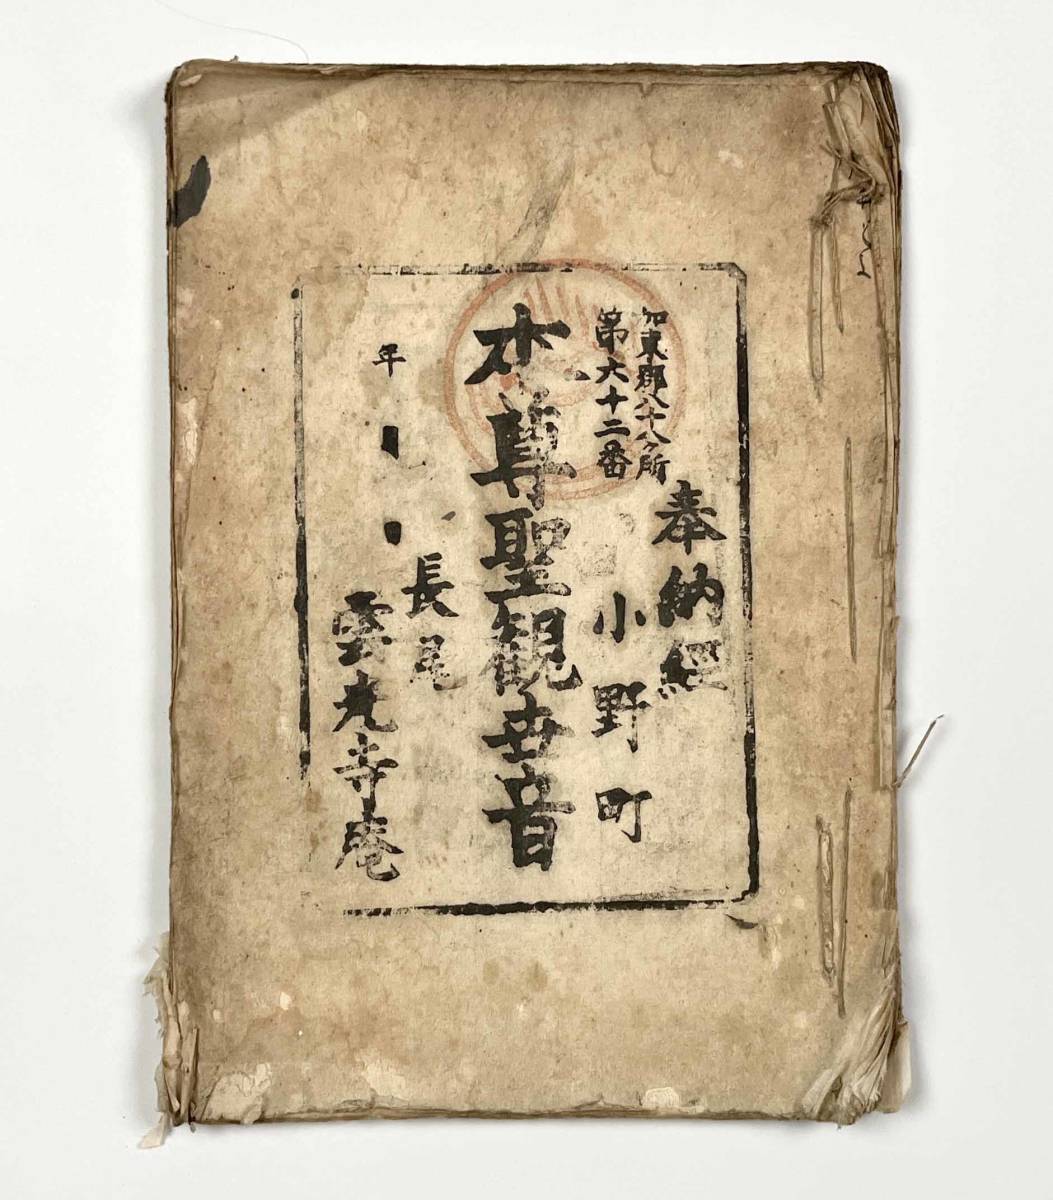 奉納経
加東郡八十八ヶ所
第六十二番
小野町
本尊聖観世音
長尾
雲光寺庵
年